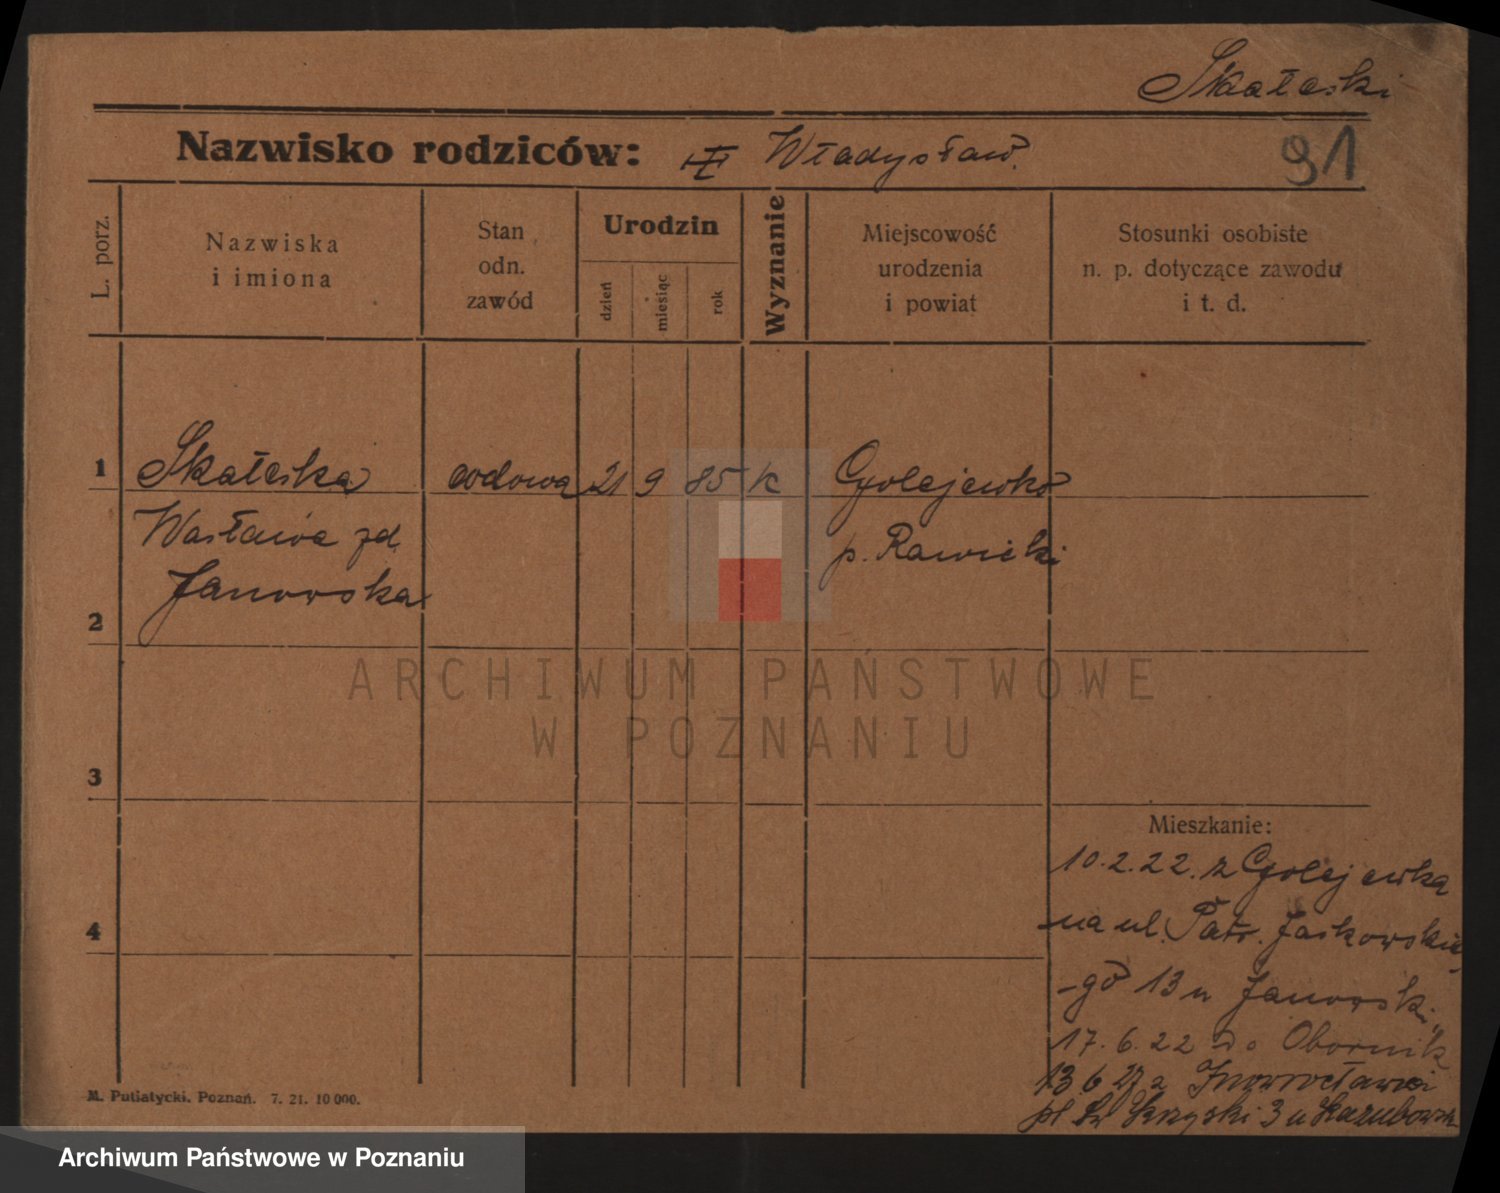 Skałeski
Nazwisko rodziców: Władysław.
91
L. porz.
Nazwiska
i imiona
Stan
odn.
zawód
Urodzin
dzień
miesiąc
rok
Wyznanie
Miejscowość
urodzenia
i powiat
Stosunki osobiste
n. p. dotyczące zawodu
i t. d.
1 Skałeska wdowa 21 9 85 K Golejewko
Wacława zd. p. Rawicki
Janowska
2
3
4
ARCHIWUM PAŃSTWOWE
W POZNANIU
Mieszkanie:
10.2.22. z Golejewka
na ul. Patr. Jackowskie
-go 13 u Janowski
17.6.22 do Obornik
13.6.27 z Inowrocławia
pl. 3 u
M. Putiatycki. Poznań. 7. 21. 10 000.
Archiwum Państwowe w Poznaniu